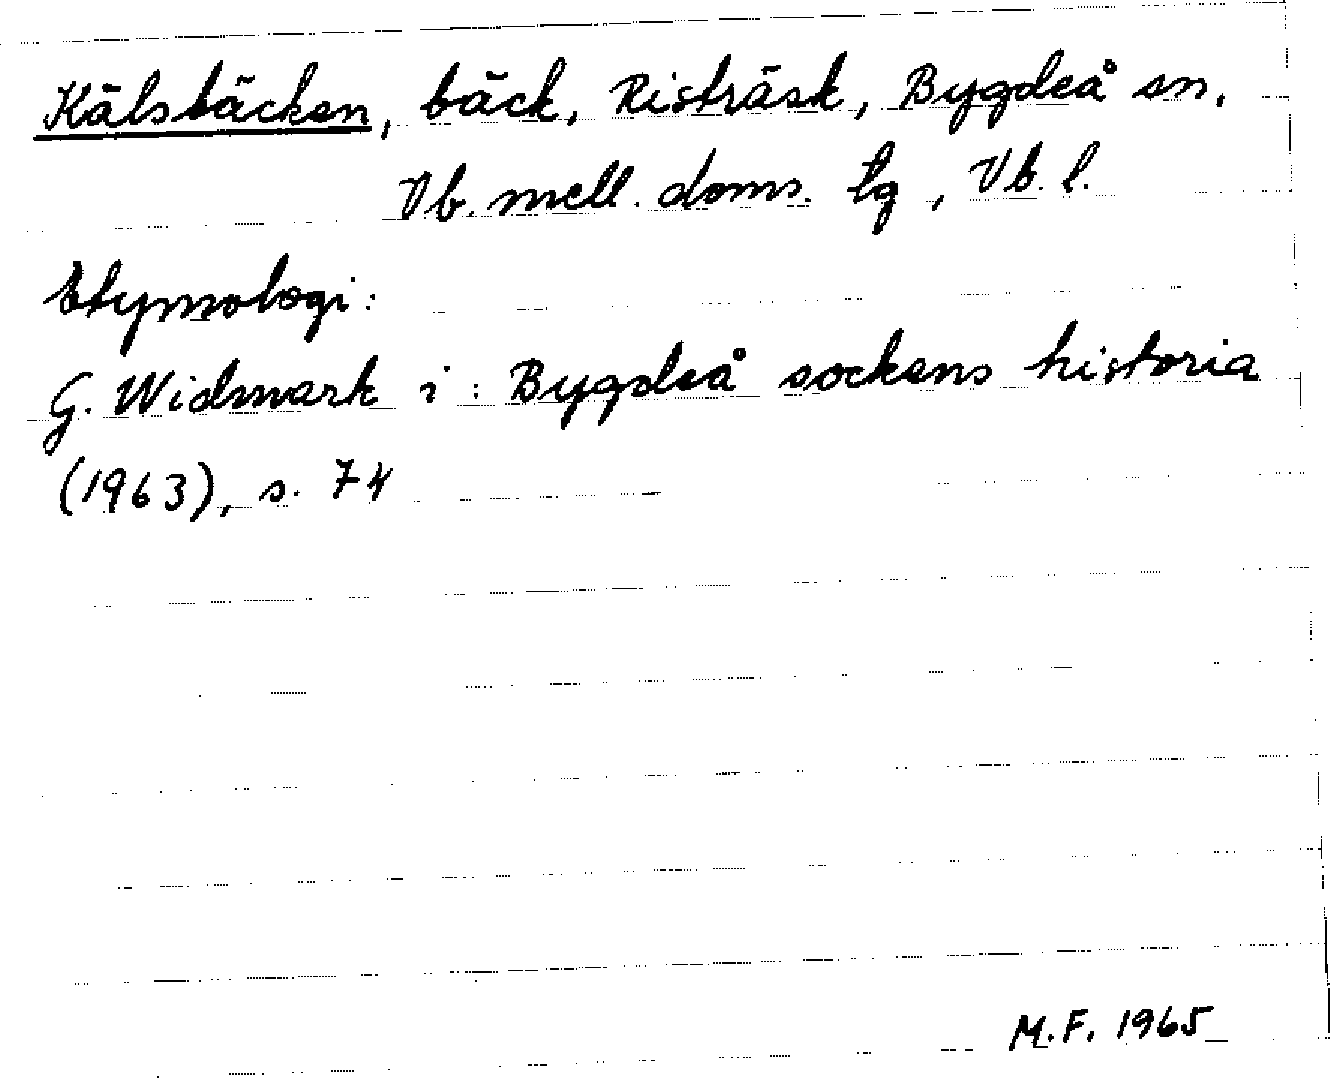 Kälsbäcken, bäck, Risträsk, Bygdeå sn,
Vb. mell. doms. tg, Vb. l.
Etymologi:
G. Widmark i: Bygdeå sockens historia
(1963), s. 74
M.F. 1965